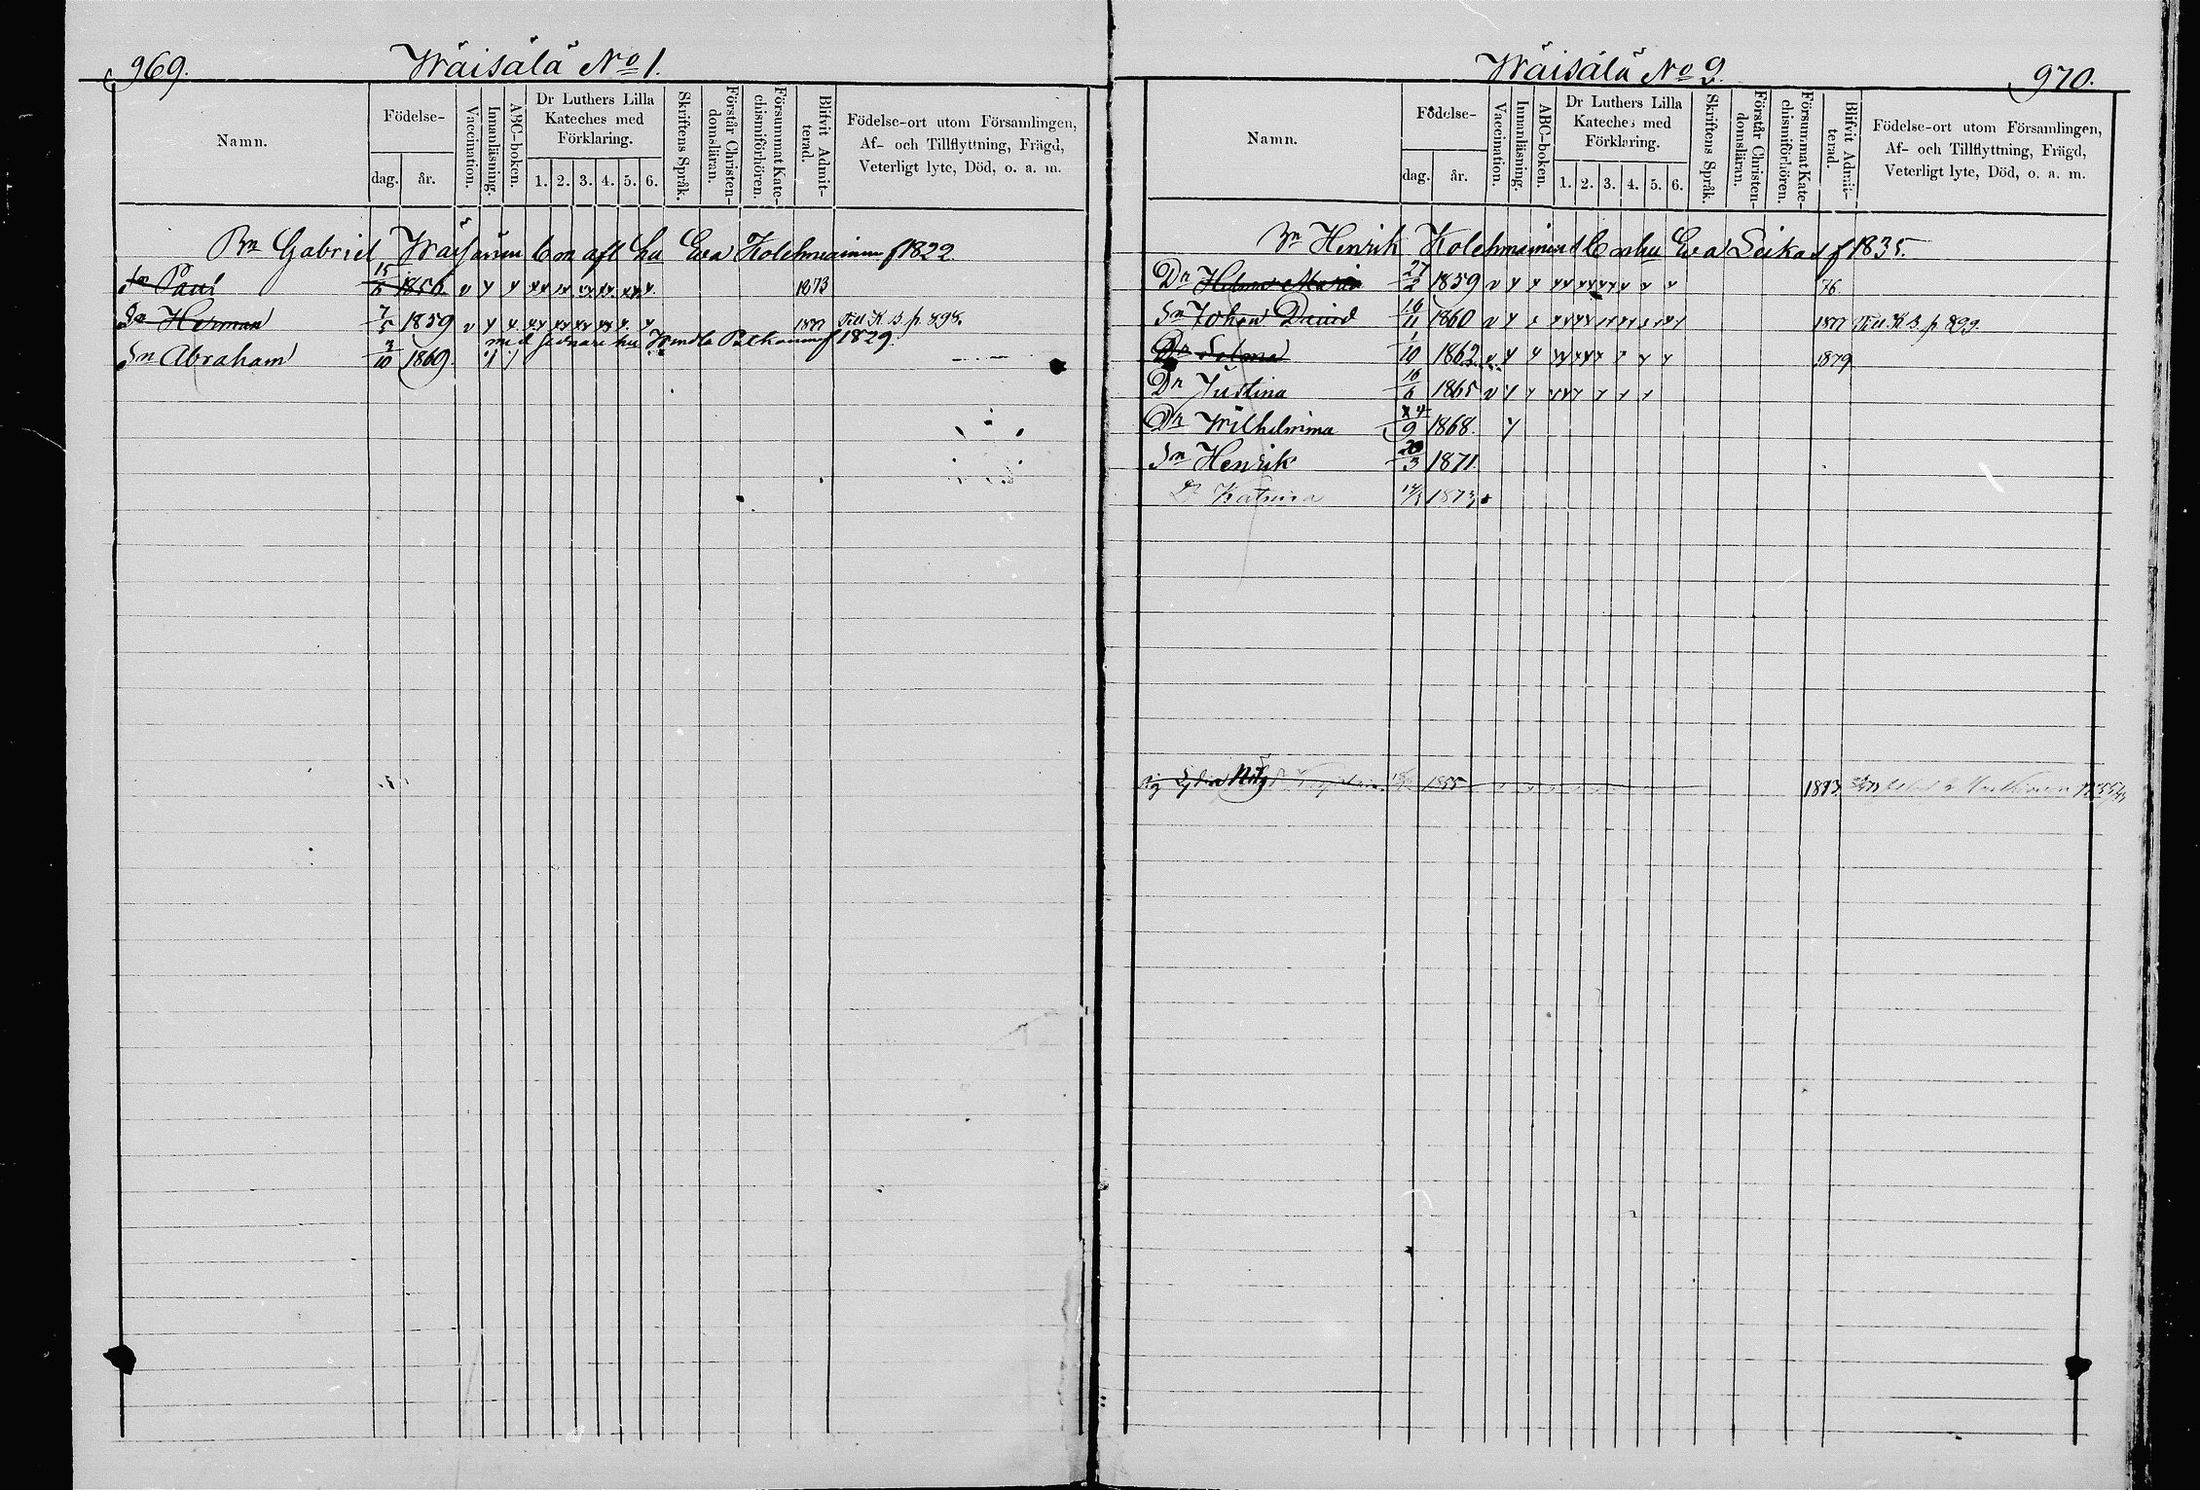 969.
Wäisälä No 1.
Namn.
Födelse-
dag.
år.
Vaccination.
Innanläsning.
ABC-boken.
Dr Luthers Lilla
Kateches med
Förklaring.
1. 2. 3. 4. 5. 6.
Skriftens Språk.
Förstår Christen-
domsläran.
Försummat Kate-
chismiförhören.
Blifvit Admit-
terad.
Födelse-ort utom Församlingen,
Af- och Tillflyttning, Frägd,
Veterligt lyte, Död, o. a. m.
Bn Gabriel Wäisänen afl hu Eva Kolehmainen f 1822.
Sn Paul 15/6 1856 1873
Sn Herman 7/5 1859 v 1877 Till K B p. 898.
med sednare hu 1829
Sn Abraham 3/10 1869.
Wäisälä No 2.
970.
Namn.
Födelse-
dag.
år.
Vaccination.
Innanläsning.
ABC-boken.
Dr Luthers Lilla
Kateches med
Förklaring.
1. 2. 3. 4. 5. 6.
Skriftens Språk.
Förstår Christen-
domsläran.
Försummat Kate-
chismiförhören.
Blifvit Admit-
terad.
Födelse-ort utom Församlingen,
Af- och Tillflyttning, Frägd,
Veterligt lyte, Död, o. a. m.
Bn Henrik Kolehmainen hu Eva Leikas f 1835.
Dr Maria 27/2 1859 v 76
Sn Johan David 16/11 1860 v 1877 Till K B p 899
Dr Selma 1/10 1862 v 1879
Dr Justina 16/6 1865 v
Dr Wilhelmina 1868.
Sn Henrik 1871.
Dr Katrina 1873
Lydia 1855 1873